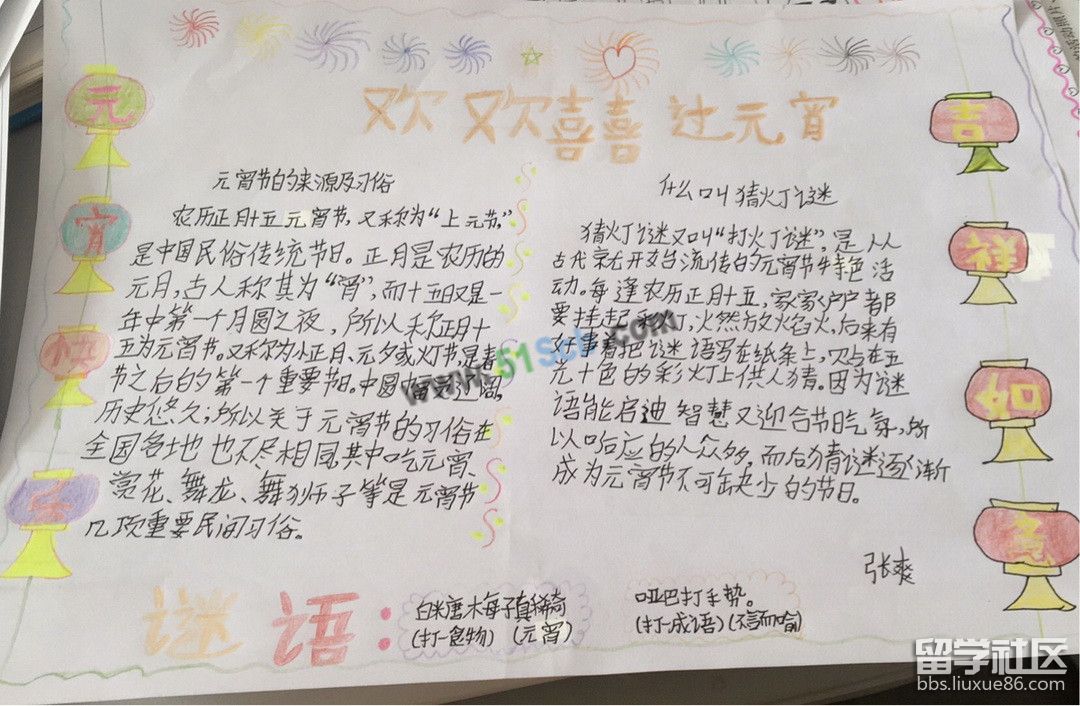 欢欢喜喜过元宵
元
宵
快
乐
元宵节的来源及习俗
农历正月十五元宵节,又称为“上元节,”
是中国民俗传统节日。正月是农历的
元月,古人称其为“宵”,而十五日又是一
年中第一个月圆之夜,所以称正月十
五为元宵节。又称为小正月、元夕或灯节,是春
节之后的第一个重要节日。中国幅员辽阔,
历史悠久,所以关于元宵节的习俗在
全国各地也不尽相同,其中吃元宵、
赏花、舞龙、舞狮子等是元宵节
几项重要民间习俗。
什么叫猜灯谜
猜灯谜又叫“打灯谜”,是从
古代就开始流传的元宵节特色活
动。每逢农历正月十五,家家户户都
要挂起彩灯,燃放焰火,后来有
好事者把谜语写在纸条上,贴在五
光十色的彩灯上供人猜。因为谜
语能启迪智慧又迎合节日气氛,所
以响应的人众多,而后猜谜逐渐
成为元宵节不可缺少的节日。
张爽
吉
祥
如
意
谜语:
白糖梅子真稀奇
(打一食物) (元宵)
哑巴打手势。
(打一成语)(不言而喻)
www.51scb.com
留学社区
bbs.liuxue86.com